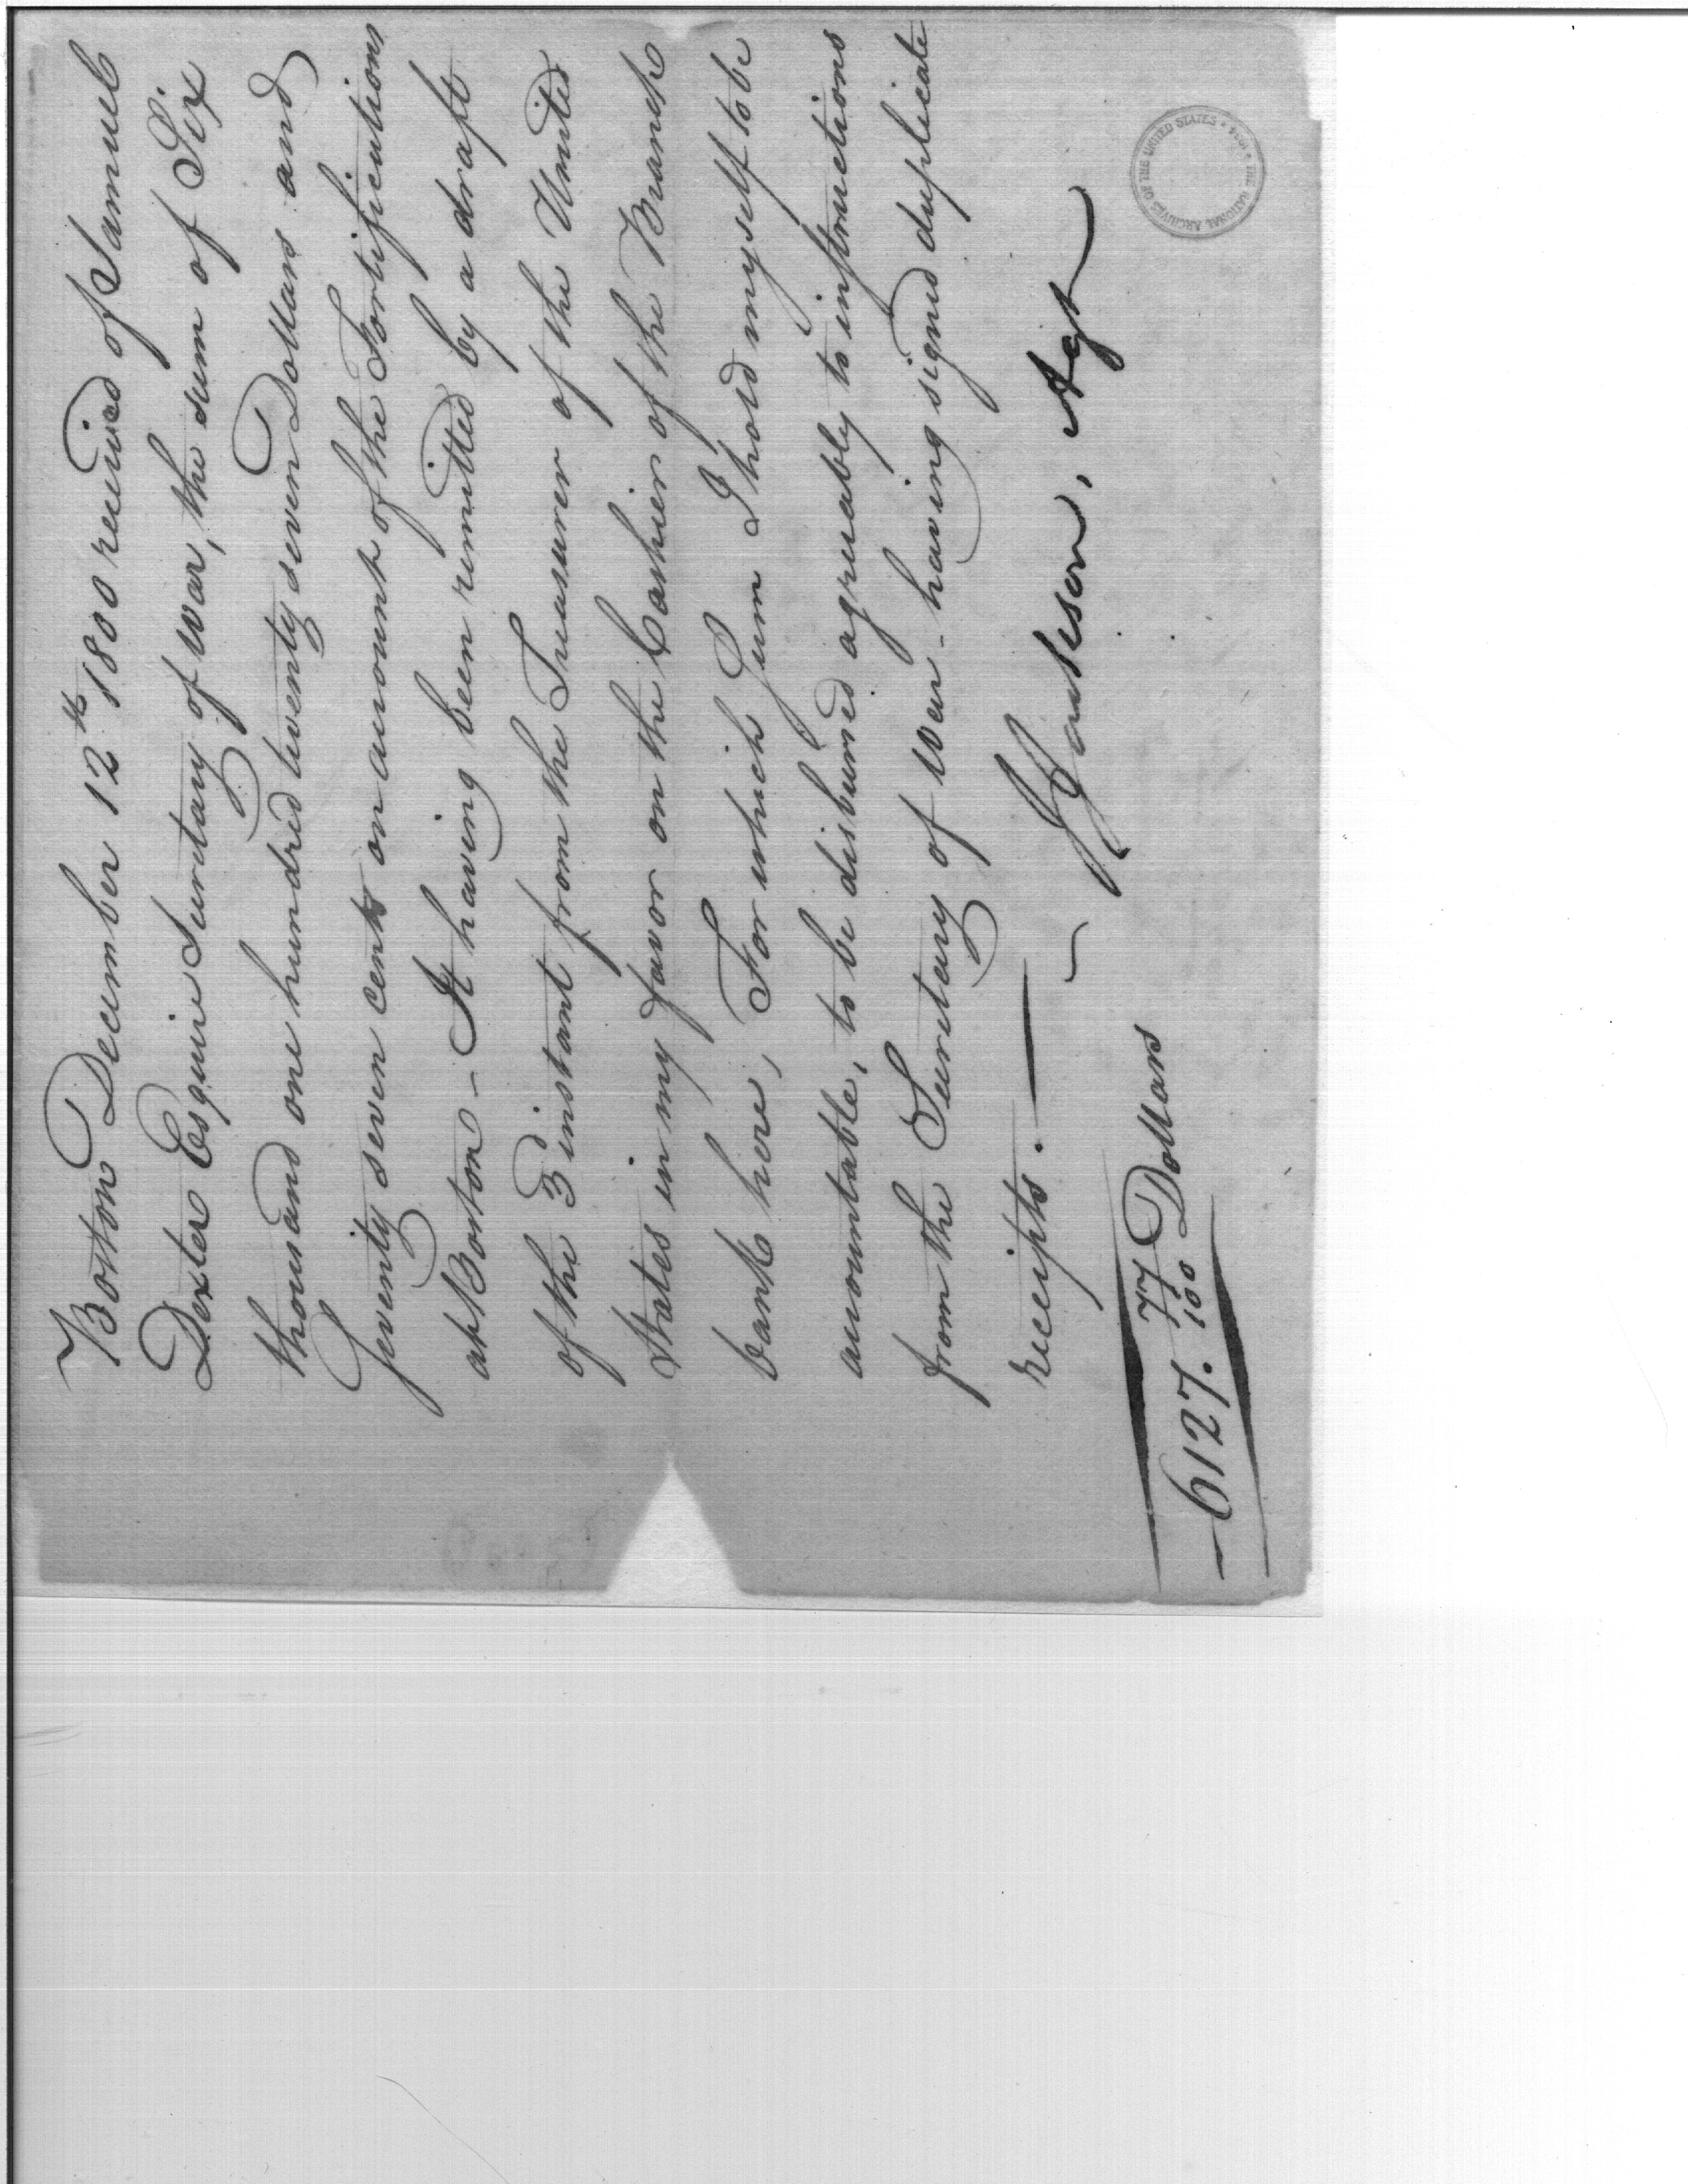 Boston December 12th 1800 received of Samuel
Dexter Esquire Secretary of War, the sum of Six
thousand one hundred twenty seven Dollars and
Seventy seven cents on account of the Fortifications
at Boston - It having been remitted by a draft
of the 3d instant from the Treasurer of the United
States in my favor on the Cashier of the Branch
bank here, For which Sum I hold myself to be
accountable, to be disbursed agreeably to instructions
from the Secretary of War - having signed duplicate
receipts.
J Jackson, Agt
6127. 77/100 Dollars
THE NATIONAL ARCHIVES OF THE UNITED STATES • 1934 •